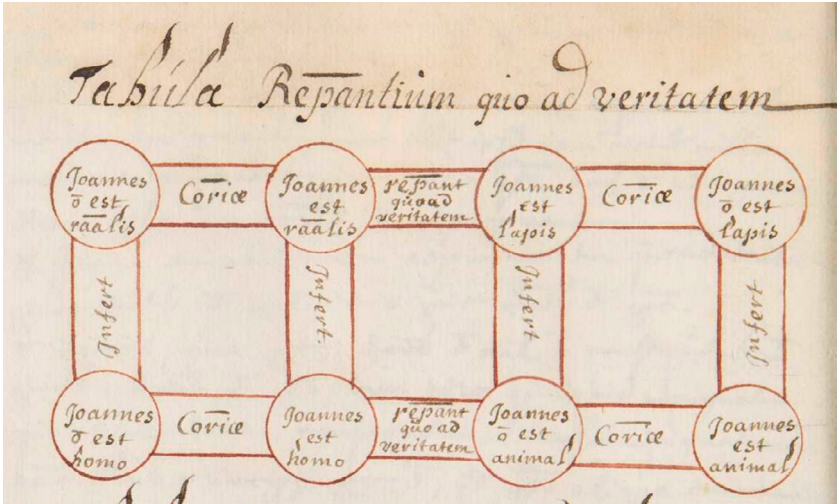 Tabula Rep̄antium quo ad veritatem
Joannes
ō est
rāālis
Cor̄icæ
Joannes
est
rāālis
rēp̄ant
quo ad
veritatem
Joannes
Est
lapis
Cor̄icæ
Joannes
ō est
lapis
Infert
Infert.
Infert
Infert
Joannes
ō est
homo
Cor̄icæ
Joannes
est
homo
rēp̄ant
quo ad
veritatem
Joannes
ō est
animal
Cor̄icæ
Joannes
est
animal